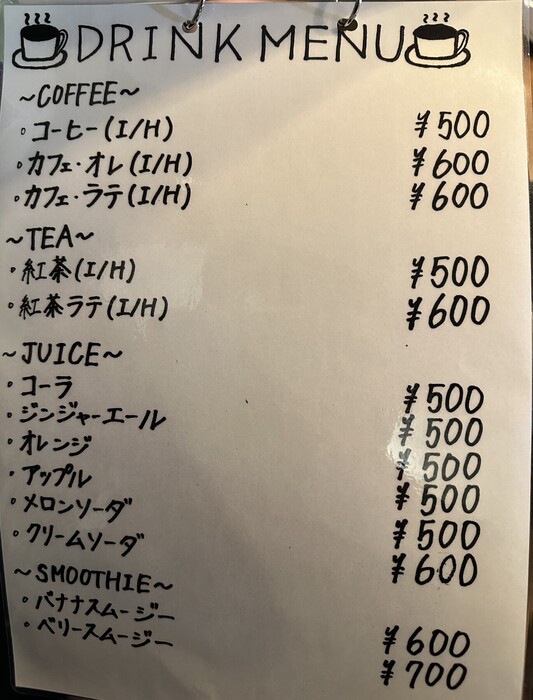 DRINK MENU
~COFFEE~
・コーヒー(I/H) ¥500
・カフェ・オレ(I/H) ¥600
・カフェ・ラテ(I/H) ¥600
~TEA~
・紅茶(I/H) ¥500
・紅茶ラテ(I/H) ¥600
~JUICE~
・コーラ ¥500
・ジンジャーエール ¥500
・オレンジ ¥500
・アップル ¥500
・メロンソーダ ¥500
・クリームソーダ ¥600
~SMOOTHIE~
・バナナスムージー ¥600
・ベリースムージー ¥700